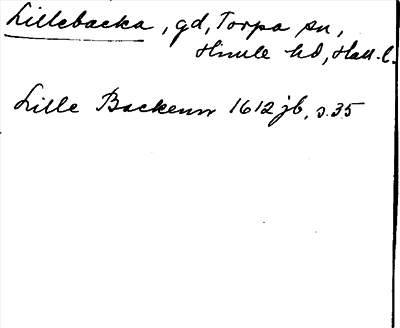 Lillebacka, gd, Torpa sn,
Himle hd, Hall. l.
Lille Backenn 1612 jb, s. 35